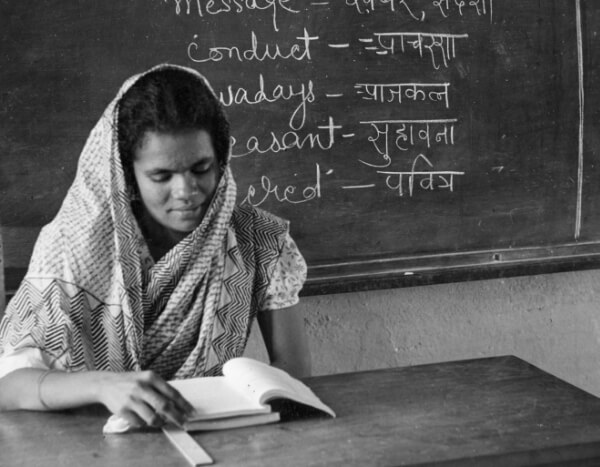 message – खबर, संदेशा
conduct – आचरण
wadays – आजकल
easant – सुहावना
cred – पवित्र